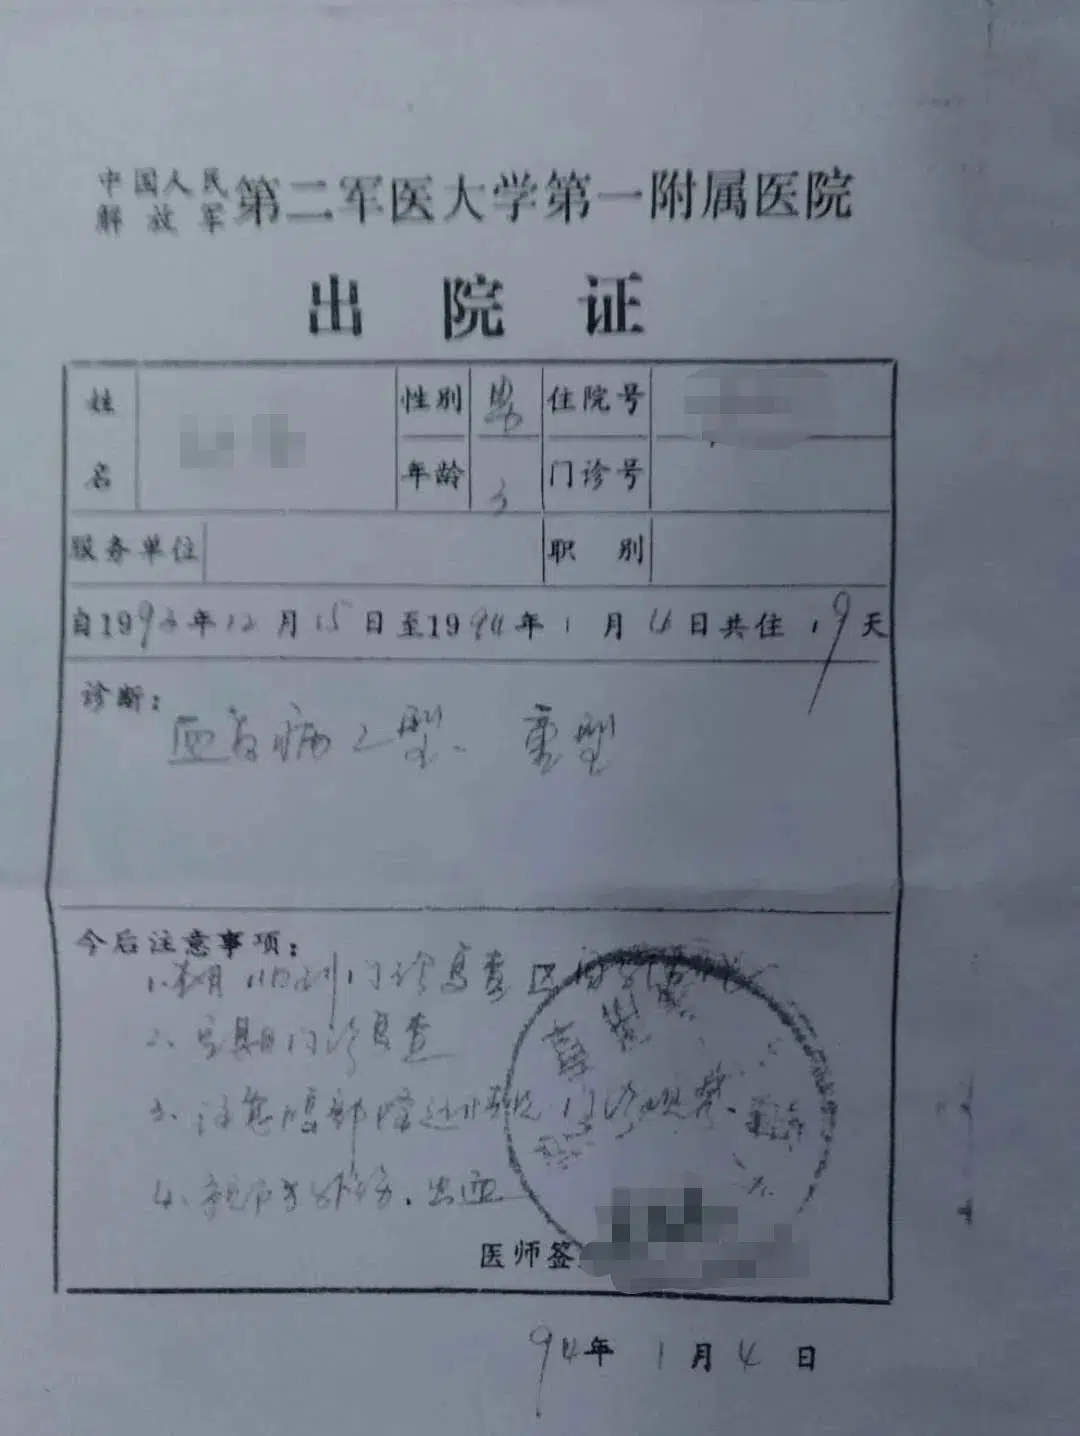 中国人民
解放军 第二军医大学第一附属医院
出院证
姓名 性别 男 住院号
年龄 门诊号
服务单位 职别
自1993年12月15日至1994年1月4日共住19天
诊断:
血友病乙型、重型
今后注意事项:
1. 门诊复查
2、定期门诊复查
3、注意腹部 门诊观察
4、外伤、出血
医师签
94年1月4日